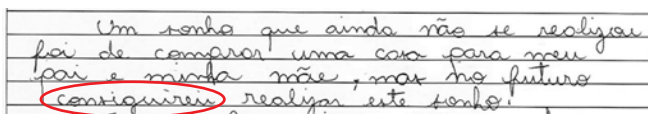 Um sonho que ainda não se realizou
foi de comprar uma casa para meu
pai e minha mãe, mas no futuro
consiguireu realizar este sonho.